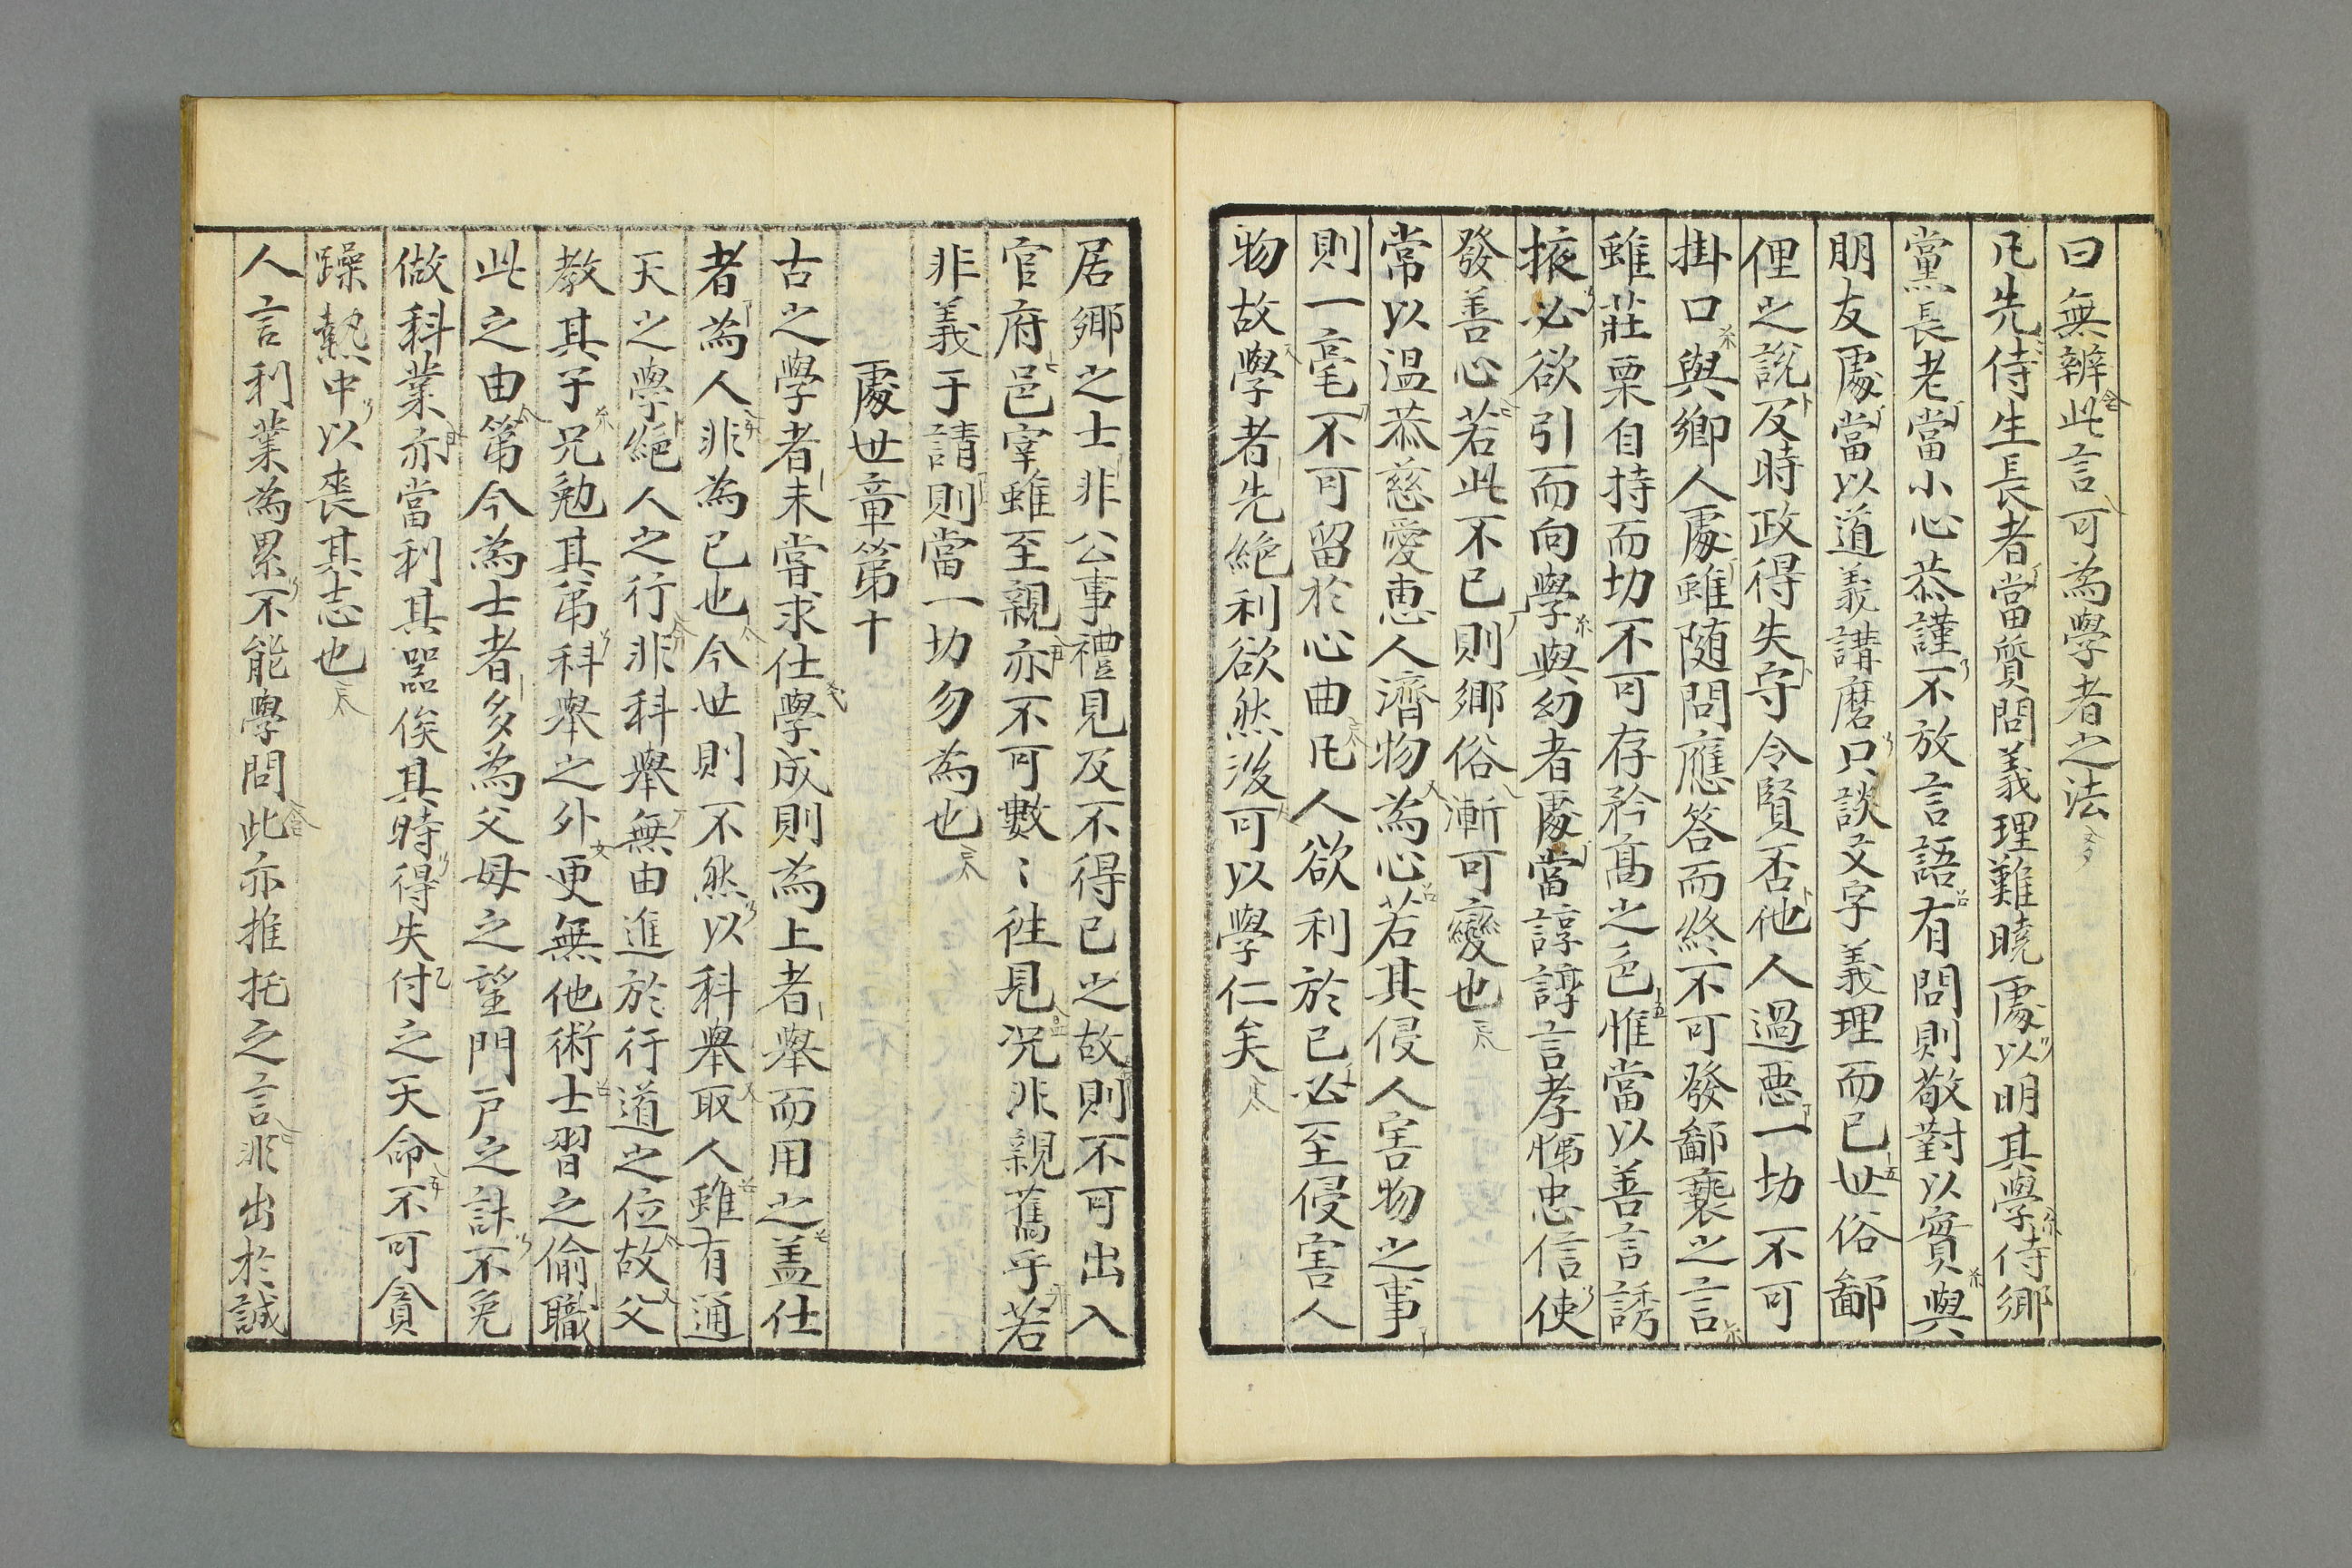 曰無辨此言可為學者之法
凡先侍生長者當質問義理難曉處以明其學侍鄉
黨長老當小心恭謹不放言語有問則敬對以實與
朋友處當以道義講磨只談文字義理而已世俗鄙
俚之說及時政得失守令賢否他人過惡一切不可
掛口與鄉人處雖隨問應答而終不可發鄙褻之言
雖莊栗自持而切不可存矜高之色惟當以善言誘
掖必欲引而向學與幼者處當諄諄言孝悌忠信使
發善心若此不已則鄉俗漸可變也
常以溫恭慈愛惠人濟物為心若其侵人害物之事
則一毫不可留於心曲凡人欲利於己必至侵害人
物故學者先絕利欲然後可以學仁矣
居鄉之士非公事禮見及不得已之故則不可出入
官府邑宰雖至親亦不可數〻往見況非親舊乎若
非義于請則當一切勿為也
處世章第十
古之學者未嘗求仕學成則為上者舉而用之盖仕
者為人非為己也今世則不然以科舉取人雖有通
天之學絕人之行非科舉無由進於行道之位故父
教其子兄勉其弟科舉之外更無他術士習之偷職
此之由第今為士者多為父母之望門戶之計不免
做科業亦當利其器俟其時得失付之天命不可貪
躁熱中以喪其志也
人言科業為累不能學問此亦推托之言非出於誠